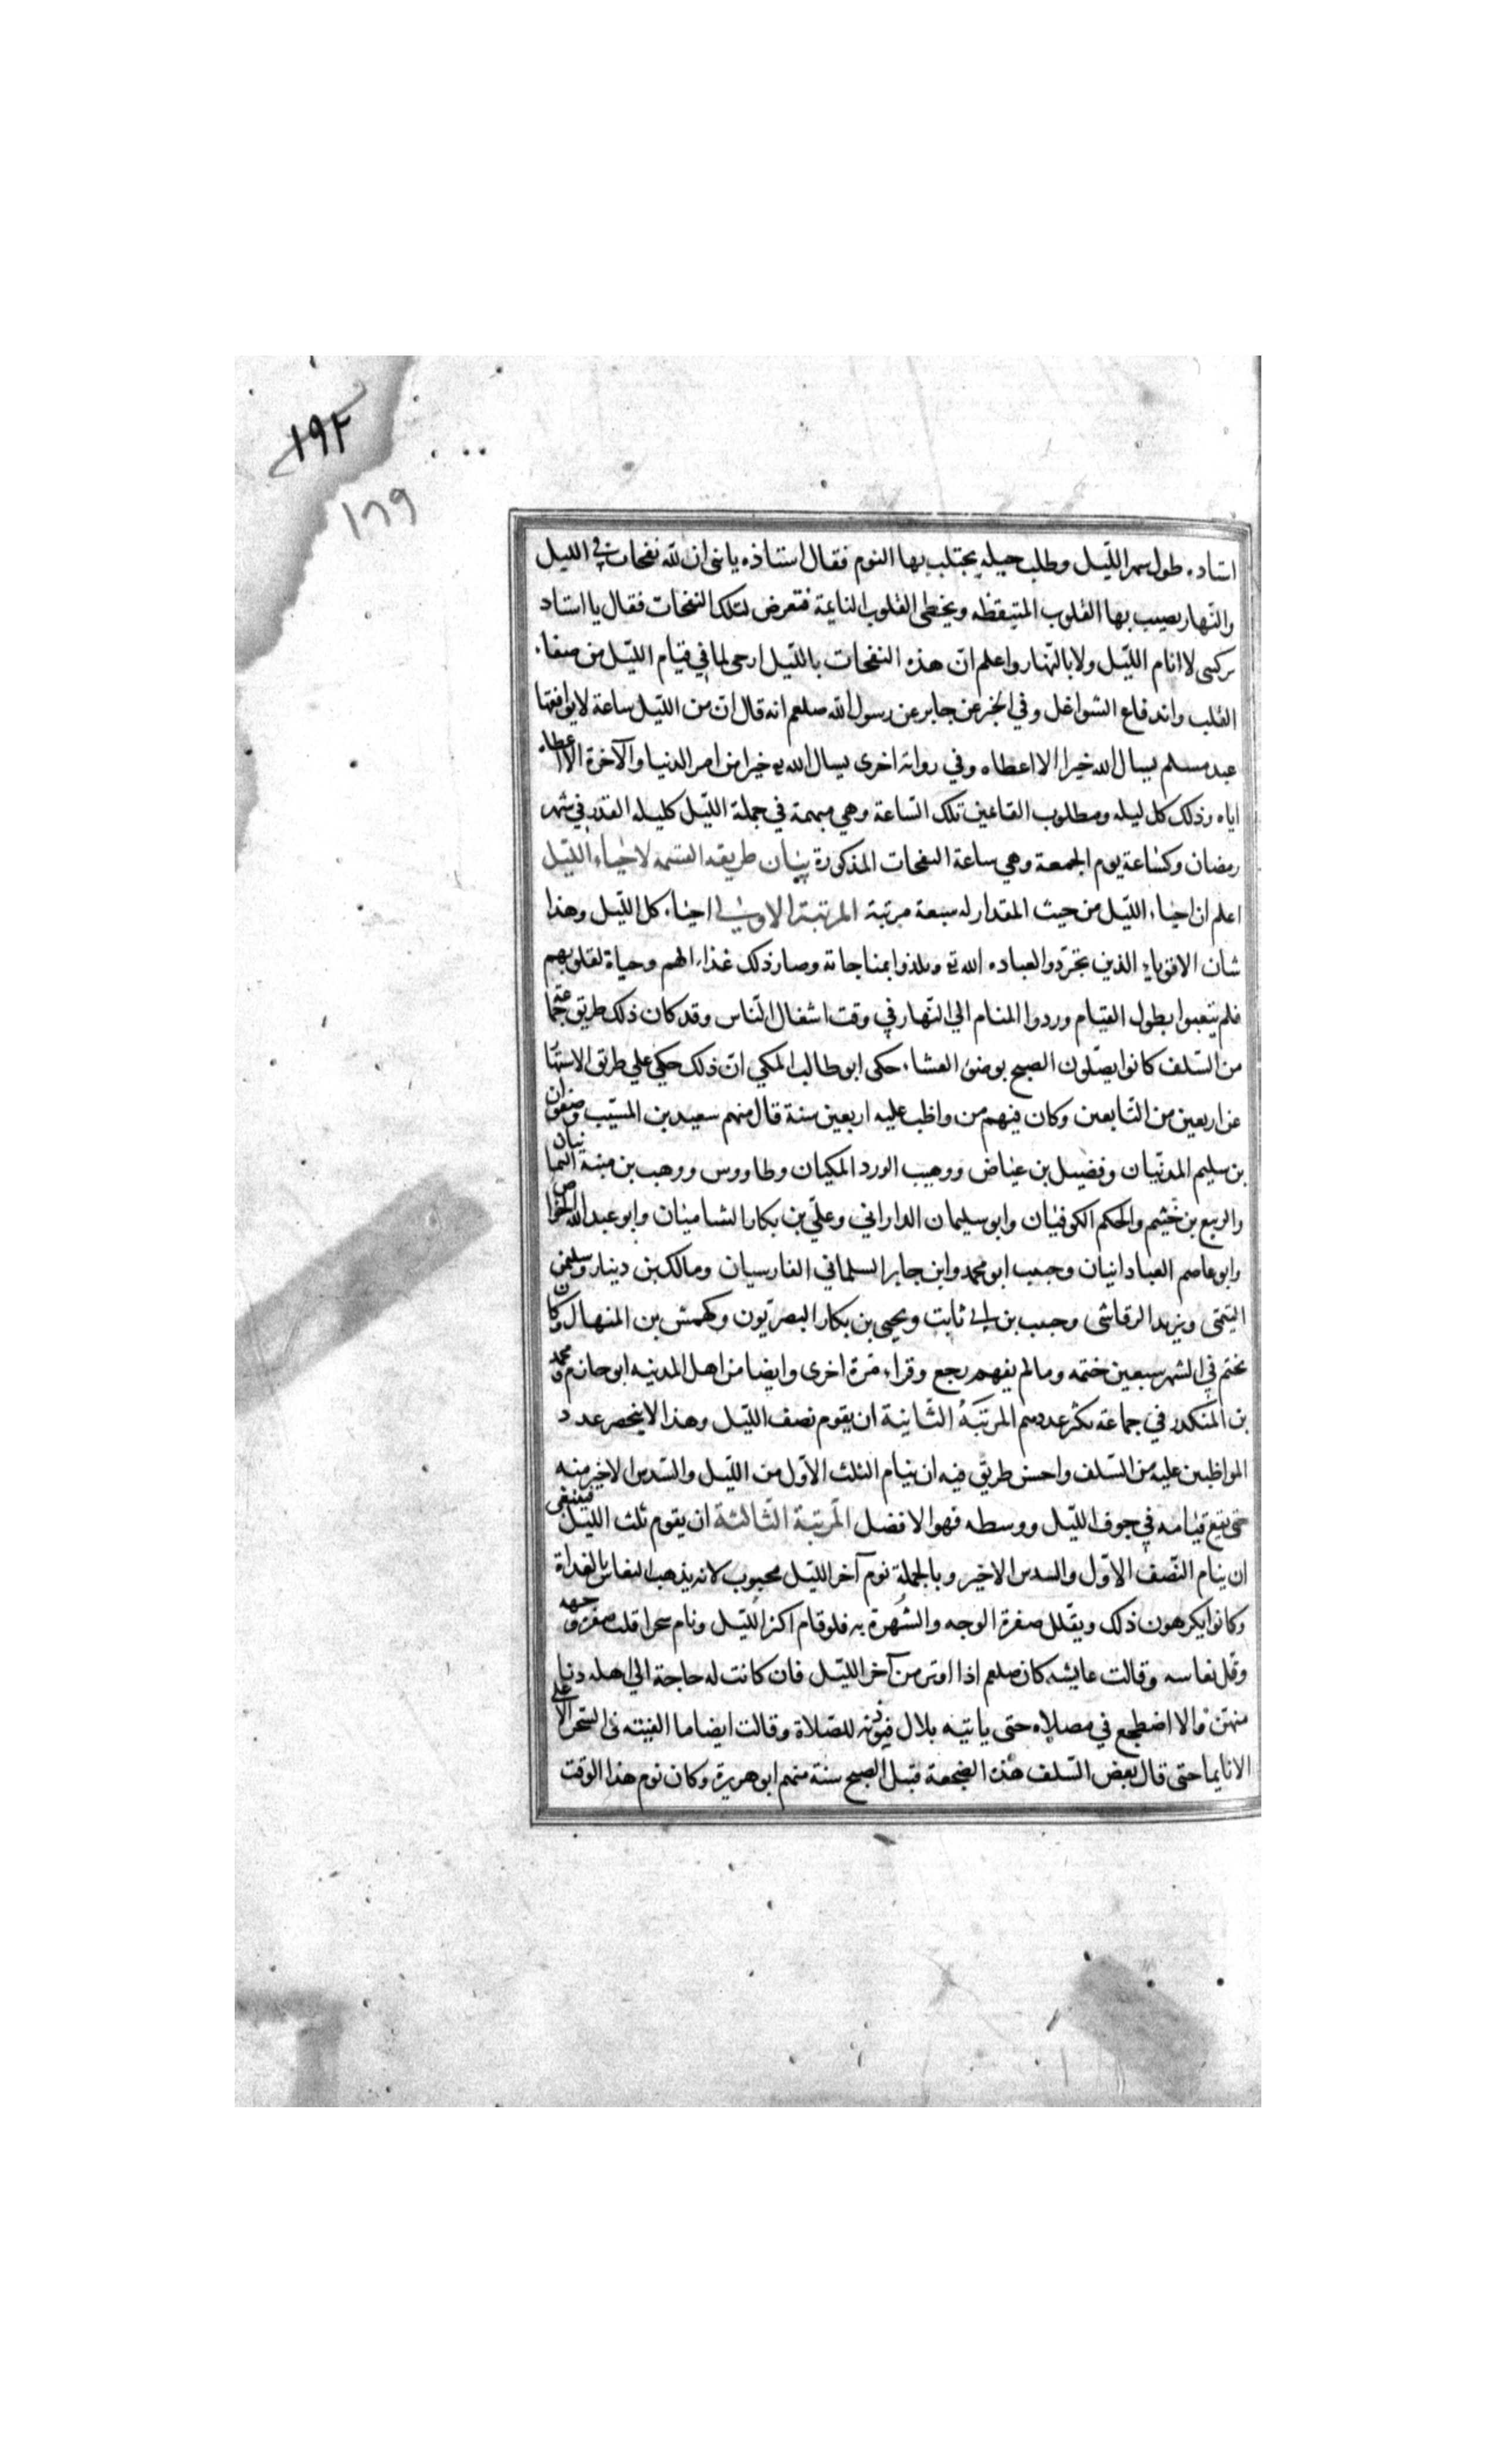 ١٩٢
١٦٩
استاده طول سهر الليل وطلب حيله يجتلب بها النوم فقال استاذه يا بنى ان لله نفحات في الليل
والنهار يصيب بها القلوب المتيقظه ويخطى القلوب النايمة فتعرض لتلك النفحات فقال يا استاد
تركتنى لا انام الليل ولا بالنهار واعلم ان هذه النفحات بالليل ارجى لما في قيام الليل من صفاء
القلب واندفاع الشواغل وفي الخبر عن جابر عن رسول الله صلعم انه قال ان من الليل ساعة لا يوافقها
عبد مسلم يسال الله خيرا الا اعطاه وفي روايه اخرى يسال الله خيرا من امر الدنيا والآخرة الا اعطاه
اياه وذلك كل ليله ومطلوب القائمين تلك الساعة وهي مبهمة في جملة الليل كليله القدر في شهر
رمضان وكساعة يوم الجمعة وهي ساعة النفحات المذكورة بيان طريقه القسمه لاحياء الليل
اعلم ان احياء الليل من حيث المقدار له سبعة مرتبة المرتبة الاولى احياء كل الليل وهذا
شان الاقوياء الذين تجردوا لعباده الله تع وتلذذوا بمناجاته وصار ذلك غذاء لهم وحياة لقلوبهم
فلم يتعبوا بطول القيام وردوا المنام الي النهار في وقت اشغال الناس وقد كان ذلك طريق جماعة
من السلف كانوا يصلون الصبح بوضوء العشاء حكى ابو طالب المكي ان ذلك حكي علي طريق الاستها
عن اربعين من التابعين وكان فيهم من واظب عليه اربعين سنة قال منهم سعيد بن المسيب وصفوان
بن سليم المدنيان وفضيل بن عياض ووهيب الورد المكيان وطاووس ووهب بن منبه اليمانيان
والربيع بن خثيم والحكم الكوفيان وابو سليمان الداراني وعلي بن بكار الشاميان وابو عبد الله الخواص
وابو عاصم العبادانيان وحبيب ابو محمد وابن جابر السلماني الفارسيان ومالك بن دينار وسليمن
التيمى ويزيد الرقاشى وحبيب بن ابي ثابت ويحيى بن بكار البصريون وكهمش بن المنهال وكان
يختم في الشهر سبعين ختمه وما لم يفهم رجع وقراه مرة اخرى وايضا من اهل المدينه ابو حازم ومحمد
بن المنكدر في جماعة يكثر عددهم المرتبة الثانية ان يقوم نصف الليل وهذا لا ينحصر عدد
المواظبين عليه من السلف واحسن طريق فيه ان ينام الثلث الاول من الليل والسدس الاخير منه
حتى يقع قيامه في جوف الليل ووسطه فهو الافضل المرتبة الثالثة ان يقوم ثلث الليل فينبغى
ان ينام النصف الاول والسدس الاخير وبالجملة نوم آخر الليل محبوب لانه يذهب النعاس بالغداة
وكانوا يكرهون ذلك ويقلل صفرة الوجه والشهرة به فلو قام اكثر الليل ونام سحرا قلت صفرة وجهه
وقل نعاسه وقالت عايشه كان صلعم اذا اوتر من آخر الليل فان كانت له حاجة الي اهله دنا
منهن والا اضطجع في مصلاه حتى ياتيه بلال فيوذنه للصلاة وقالت ايضا ما الفيته في السحر الاعلى
الا نايما حتى قال بعض السلف هذه الضجعة قبل الصبح سنة منهم ابو هريرة وكان نوم هذا الوقت